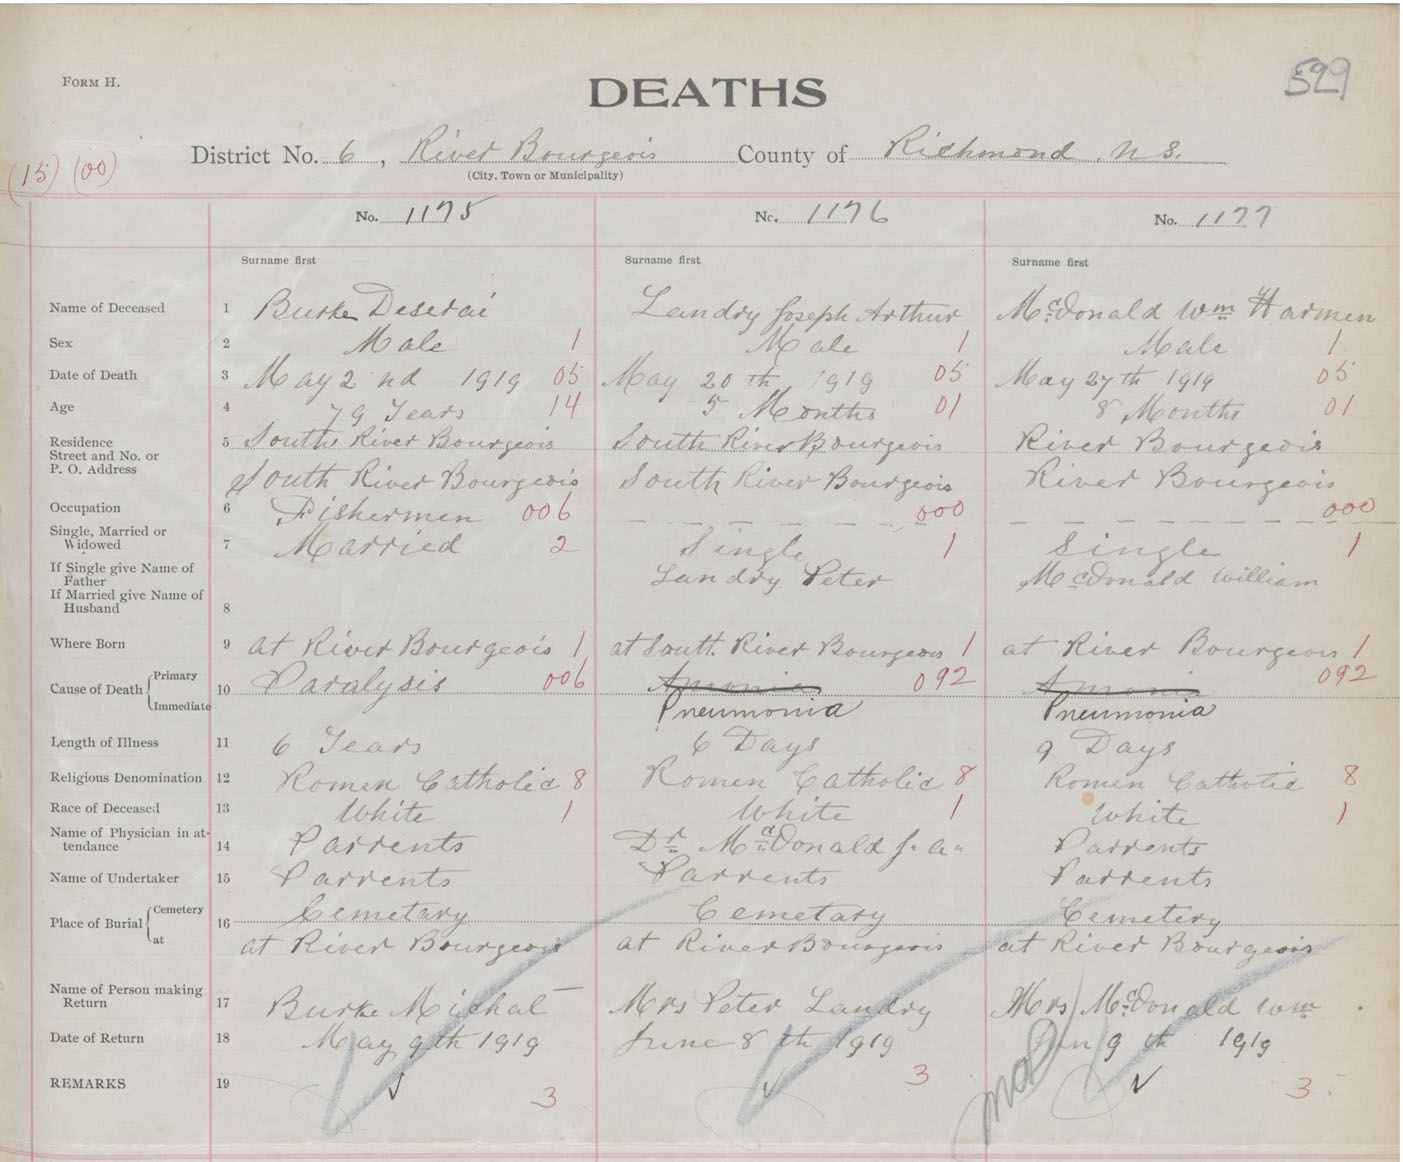 FORM H.
DEATHS
529
District No. 6, River Bourgeois County of Richmond N.S.
(City, Town or Municipality)
(15) (00)
No. 1175 No. 1176 No. 1177
Surname first Surname first Surname first
Name of Deceased 1 Burke Deserai Landry Joseph Arthur McDonald Wm Harmen
Sex 2 Male 1 Male 1 Male 1
Date of Death 3 May 2nd 1919 05 May 20th 1919 05 May 27th 1919 05
Age 4 79 Years 14 5 Months 01 8 Months 01
Residence 5 South River Bourgeois South River Bourgeois River Bourgeois
Street and No. or
P. O. Address South River Bourgeois South River Bourgeois River Bourgeois
Occupation 6 Fishermen 006 000 000
Single, Married or
Widowed 7 Married 2 Single 1 Single 1
If Single give Name of
Father Landry Peter McDonald William
If Married give Name of
Husband 8
Where Born 9 at River Bourgeois 1 at South River Bourgeois 1 at River Bourgeois 1
Cause of Death Primary 10 Paralysis 006 Amonia 092 Amonia 092
Immediate Pneumonia Pneumonia
Length of Illness 11 6 Years 6 Days 9 Days
Religious Denomination 12 Romen Catholic 8 Romen Catholic 8 Romen Catholic 8
Race of Deceased 13 White 1 White 1 White 1
Name of Physician in at-
tendance 14 Parrents Dr McDonald J. A. Parrents
Name of Undertaker 15 Parrents Parrents Parrents
Place of Burial Cemetery 16 Cemetary Cemetary Cemetery
at at River Bourgeois at River Bourgeois at River Bourgeois
Name of Person making
Return 17 Burke Michal Mrs Peter Landry Mrs McDonald Wm
Date of Return 18 May 9th 1919 June 8th 1919 Jun 9th 1919
REMARKS 19 3 3 3